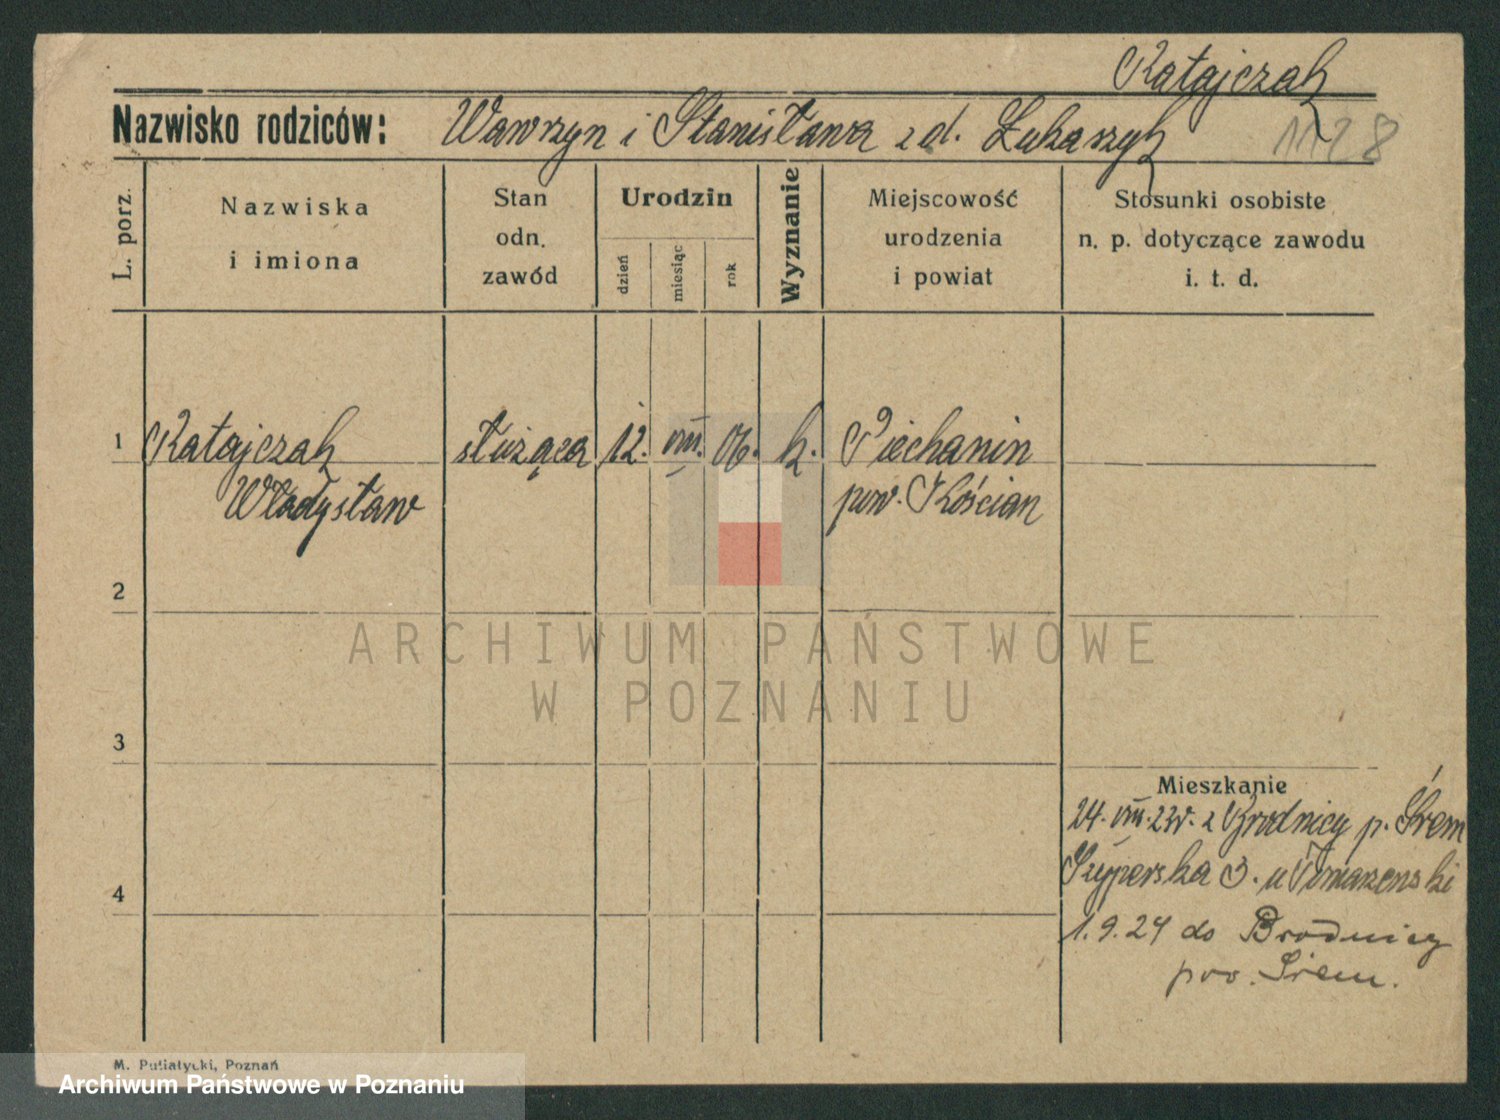 Ratajczak
Nazwisko rodziców: Wawrzyn i Stanisława z d. Łukaszyk
1128
L. porz.
Nazwiska
i imiona
Stan
odn.
zawód
Urodzin
dzień
miesiąc
rok
Wyznanie
Miejscowość
urodzenia
i powiat
Stosunki osobiste
n. p. dotyczące zawodu
i. t. d.
1 Ratajczak służąca 12. VIII. 06. k. Piechanin
Władysław pow. Kościan
2
ARCHIWUM PAŃSTWOWE
W POZNANIU
3
Mieszkanie
24. VIII. 23r. z Brodnicy p. Śrem
3. u
4
1.9.24 do Brodnicy
pow. Śrem.
M. Putiatycki, Poznań
Archiwum Państwowe w Poznaniu